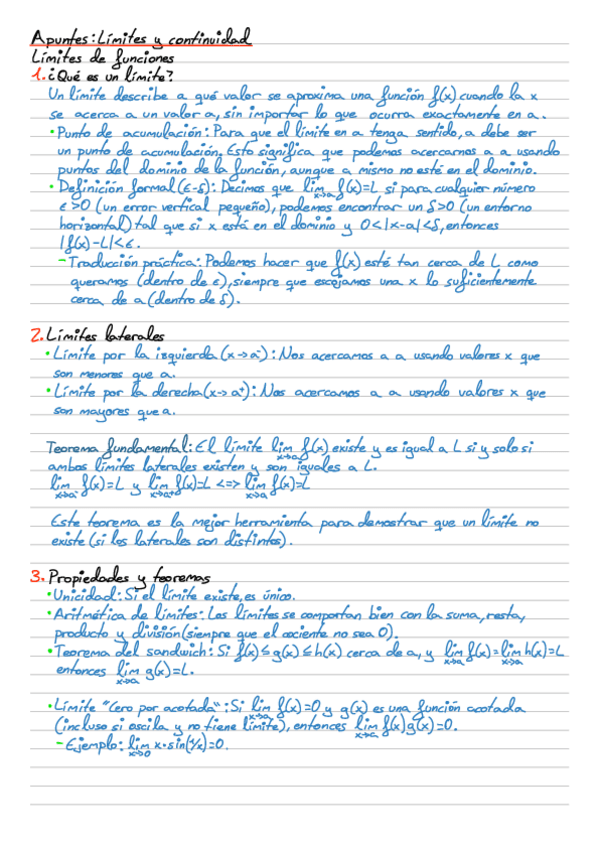 Apuntes: Límites y continuidad
Límites de funciones
1. ¿Qué es un límite?
Un límite describe a qué valor se aproxima una función f(x) cuando la x
se acerca a un valor a, sin importar lo que ocurra exactamente en a.
• Punto de acumulación: Para que el límite en a tenga sentido, a debe ser
un punto de acumulación. Esto significa que podemos acercarnos a a usando
puntos del dominio de la función, aunque a mismo no esté en el dominio.
• Definición formal (ε-δ): Decimos que lim x→a f(x)=L si para cualquier número
ε>0 (un error vertical pequeño), podemos encontrar un δ>0 (un entorno
horizontal) tal que si x está en el dominio y 0<|x-a|<δ, entonces
|f(x)-L|<ε.
- Traducción práctica: Podemos hacer que f(x) esté tan cerca de L como
queramos (dentro de ε), siempre que escojamos una x lo suficientemente
cerca de a (dentro de δ).
2. Límites laterales
• Límite por la izquierda (x→a⁻): Nos acercamos a a usando valores x que
son menores que a.
• Límite por la derecha (x→a⁺): Nos acercamos a a usando valores x que
son mayores que a.
Teorema fundamental: El límite lim x→a f(x) existe y es igual a L si y solo si
ambos límites laterales existen y son iguales a L.
lim x→a⁻ f(x)=L y lim x→a⁺ f(x)=L <=> lim x→a f(x)=L
Este teorema es la mejor herramienta para demostrar que un límite no
existe (si los laterales son distintos).
3. Propiedades y teoremas
• Unicidad: Si el límite existe, es único.
• Aritmética de límites: Los límites se comportan bien con la suma, resta,
producto y división (siempre que el cociente no sea 0).
• Teorema del sandwich: Si f(x)≤g(x)≤h(x) cerca de a, y lim x→a f(x)=lim x→a h(x)=L
entonces lim x→a g(x)=L.
• Límite "Cero por acotada": Si lim x→a f(x)=0 y g(x) es una función acotada
(incluso si oscila y no tiene límite), entonces lim x→a f(x)g(x)=0.
- Ejemplo: lim x→0 x·sin(1/x)=0.